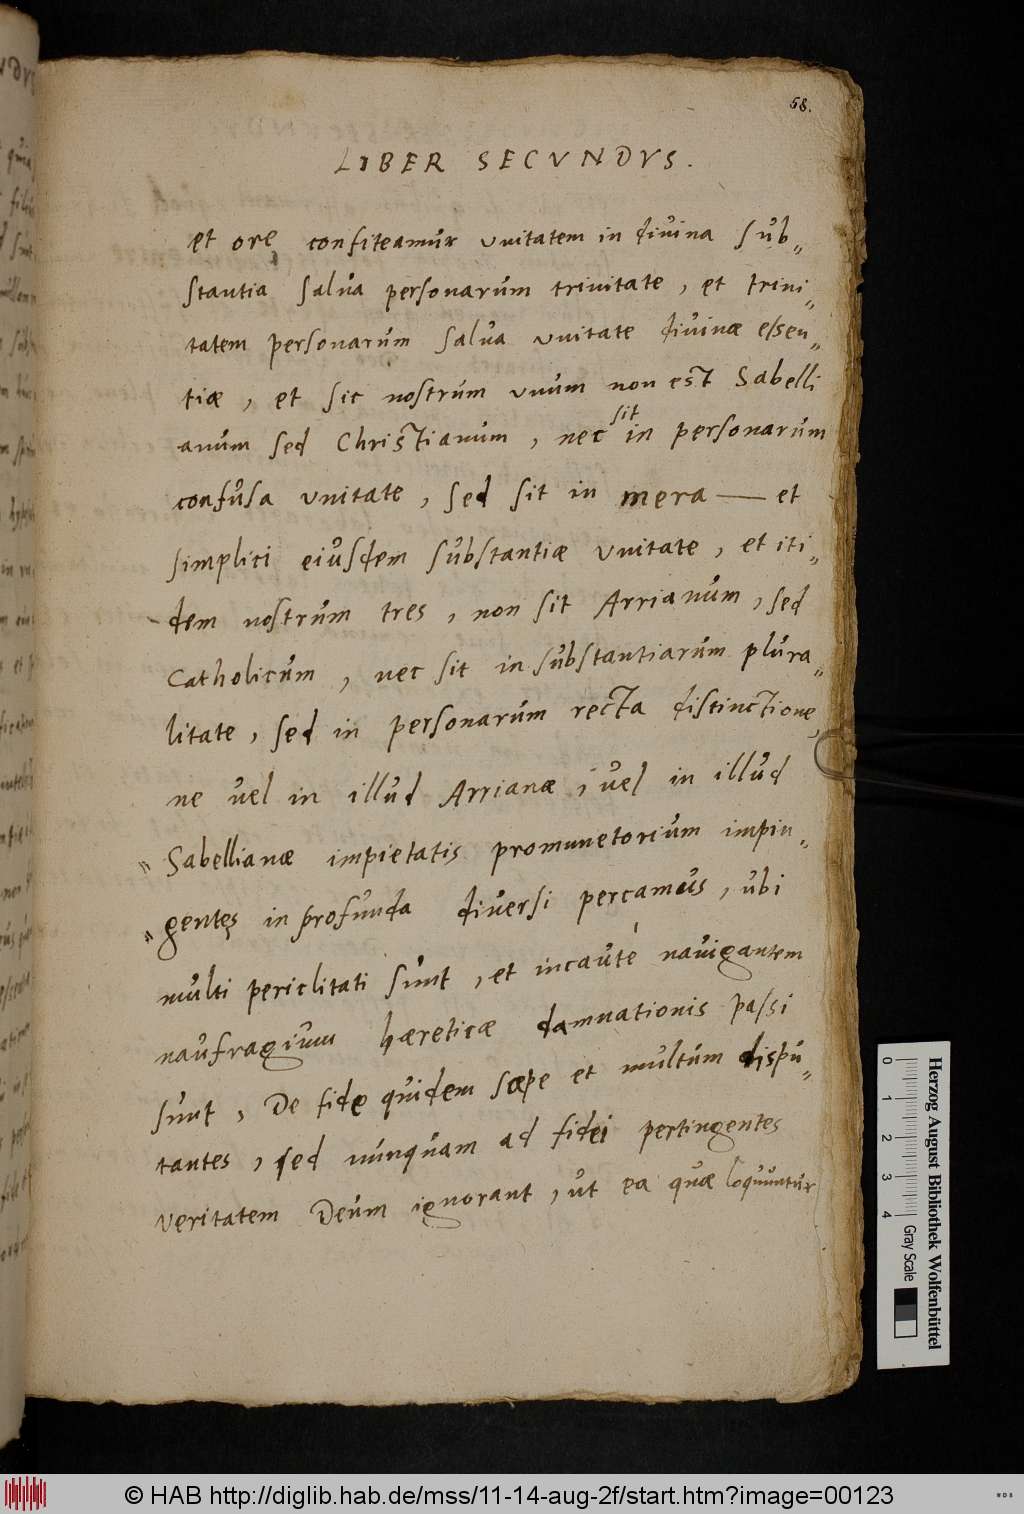 58.
LIBER SECVNDVS.
et ore confiteamur vnitatem in diuina sub„
stantia salua personarum trinitate, et trini„
tatem personarum salua vnitate diuinæ essen„
tiæ, et sic nostrum vnum non est Sabelli
anum sed Christianum, nec sit in personarum
confusa vnitate, sed sit in mera — et
simplici eiusdem substantiæ vnitate, et iti„
dem nostrum tres, non sit Arrianum, sed
Catholicum, nec sit in substantiarum plura„
litate, sed in personarum recta distinctione,
ne uel in illud Arrianæ, uel in illud
Sabellianæ impietatis promunctorium impin„
gentes in profunda diuersi percamus, ubi
multi periclitati sunt, et incaute nauigantem
naufragium hæreticæ damnationis passi
sunt, De fide quidem sæpe et multum dispu„
tantes, sed nunquam ad fidei pertingentes
veritatem Deum ignorant, ut ea quæ loquuntur
Herzog August Bibliothek Wolfenbüttel
0 1 2 3 4 Gray Scale
© HAB http://diglib.hab.de/mss/11-14-aug-2f/start.htm?image=00123